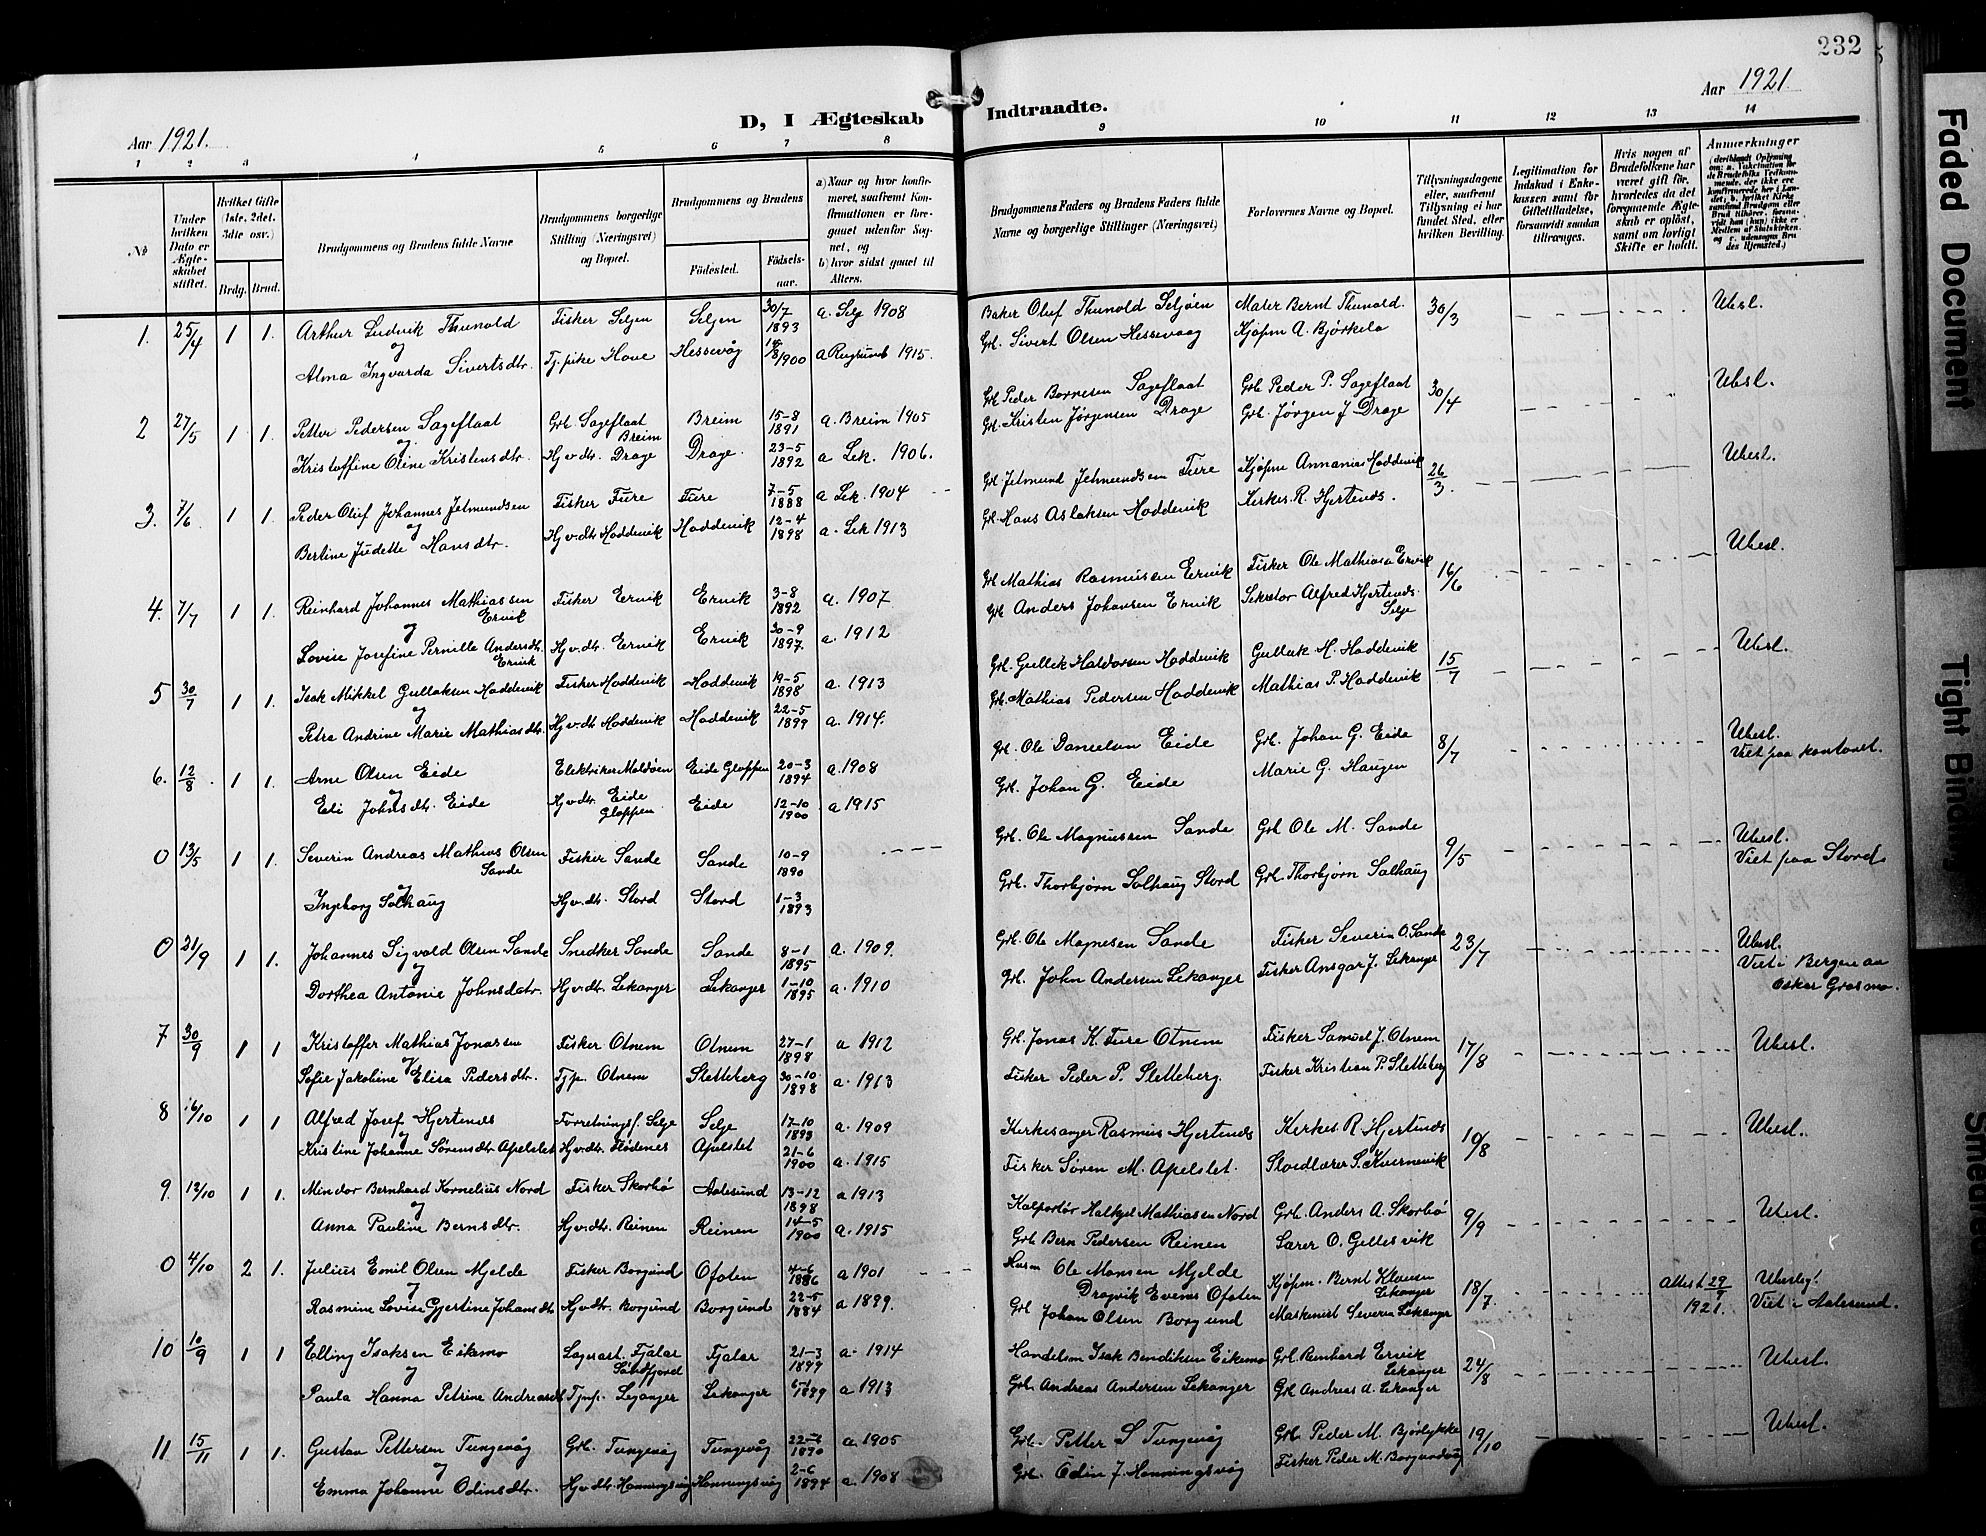 232
Aar 1921.
D, I Ægteskab
Indtraadte.
Aar 1921
1 2 3 4 5 6 7 8
9 10 11 12 13 14
№
Under hvilken Dato er Ægteskabet stiftet.
Hvilket Gifte (1ste, 2det, 3dte osv.)
Brdg. Brud.
Brudgommens og Brudens fulde Navne
Brudgommens borgerlige Stilling (Næringsvei) og Bopæl.
Brudgommens og Brudens
Fødested.
Fødselsaar.
a) Naar og hvor konfirmeret, saafremt Konfirmationen er foregaaet udenfor Sognet, og
b) hvor sidst gaaet til Alters.
Brudgommens Faders og Brudens Faders fulde Navne og borgerlige Stillinger (Næringsvei)
Forlovernes Navne og Bopæl.
Tillysningsdagene eller, saafremt Tillysning ei har fundet Sted, efter hvilken Bevilling.
Legitimation for Indskud i Enkekassen samt for Giftetilladelse, forsaavidt saadan tiltrænges.
Hvis nogen af Brudefolkene har været gift før, hvorledes da det foregaaende Ægteskab er opløst, samt om lovligt Skifte er holdt.
Anmærkninger
1. 25/4 1 1. Arthur Ludvik Thunold Fisker Seljen Seljen 30/7 1893 a. Selj 1908 Baker Oluf Thunold Seljøen Maler Bernt Thunold. 30/3 Ubsl.
og
Alma Ingvarda Sivertsdtr. Tj.pike Hove Hessevåg 1900 a Rugsund 1915. Grb. Sivert Olsen Hessevaag Kjøpm A. Bjørkelo
2 27/5 1 1. Petter Pedersen Sageflaat Grb. Sageflaat Breim Breim 15-8 1891 a. Breim 1905 Grb Peder Bornesen Sageflaat Grb Peder P. Sageflaat 30/4 Ubsl.
og
Kristoffine Oline Kristensdtr. Hjv.dtr. Drage Drage. 23-5 1892 a Lek. 1906. Grb. Kristen Jørgensen Drage Grb. Jørgen J Drage
3. 7/6 1 1. Peder Oluf Johannes Jetmundsen Fisker Fure Fure 7-5 1888 a Lek. 1904 Grb Jetmund Jetmundsen Fure Kjøpm Annanias Hoddevik 26/3 Ubesl.
og
Bertine Judette Hansdtr. Hjv.dtr Hoddevik Hoddevik 12-4 1898 a. Lek 1913 Grb. Hans Aslaksen Hoddevik Kirkes. R. Hjertenes.
4. 7/7 1 1. Reinhard Johannes Mathiassen Ervik Fisker Ervik Ervik 3-8 1892 a. 1907 Grb Mathias Rasmussen Ervik Fisker Ole Mathiasen Ervik 16/6 Ubesl.
og
Lovise Josefine Pernille Andersdtr. Ervik Hjv.dtr. Ervik Ervik 30-9 1897. a. 1912 Grb Anders Johansen Ervik Sekretær Alfred Hjertenes Selje
5 30/7 1 1. Isak Mikkel Gullaksen Hoddevik Fisker Hoddevik Hoddevik 19-5 1898 a. 1913 Grb. Gullek Haldorsen Hoddevik Gullak H. Hoddevik 15/7 Ubesl.
og
Petra Andrine Marie Mathiasdtr. Hjv.dtr Hoddevik Hoddevik 22-5 1899 a. 1914. Grb. Mathias Pedersen Hoddevik Mathias P. Hoddevik
6. 12/8 1 1. Arne Olsen Eide Elektriker Maldøen Eide Gloppen 20-3 1894 a. 1908 Grb. Ole Danielsen Eide Grb. Johan G. Eide 8/7 Ubesl. Viet paa kontoret.
og
Eli Johnsdtr. Eide Hjvdtr. Eide Gloppen Eide 12-10 1900 a 1915 Grb. Johan G. Eide Marie G. Haugen
0 13/5 1 1. Severin Andreas Mathias Olsen Sande Fisker Sande Sande 10-9 1890 Grb. Ole Magnussen Sande Grb Ole M. Sande 9/5 Ubesl. Viet paa Stord
og
Ingborg Solhaug Hjv.dtr. Stord Stord 1-3 1893 Grb. Thorbjørn Solhaug Stord Grb. Thorbjørn Salhaug
0 21/9 1 1. Johannes Sigvald Olsen Sande Snedker Sande Sande 8-1 1895 a. 1909. Grb. Ole Magnesen Sande Fisker Severin O. Sande 23/7 Ubesl. Viet i Bergen av Oskar Grasmo.
og
Dorthea Antonie Johnsdatr. Hjv.dtr. Lekanger Lekanger 1-10 1895 a. 1910 Grb. John Andersen Lekanger Fisker Ansgar J. Lekanger
7 30/9 1 1 Kristoffer Mathias Jonassen Fisker Otnem Otnem 27-1 1898 a 1912 Grb. Jonas K. Fure Otnem Fisker Samuel J. Otnem 17/8 Ubesl.
og
Sofie Jakobine Elisa Pedersdtr. Tjp. Otnem Sletteberg 30-10 1898 a. 1913 Fisker Peder P. Sletteberg. Fisker Kristian P. Sletteberg
8 16/10 1 1 Alfred Josef Hjertenes Forretningsf. Selje Selje 17-10 1893 a. 1909 Kirkesanger Rasmus Hjertenes Kirkes R. Hjertenes 10/8 Ubesl.
og
Kristine Johanne Sørensdtr Apelslet Hjvdtr. Flødenes Apelstet 21-6 1900 a. 1915 Fisker Søren M. Apelslet.
9. 12/10 1 1. Mindor Bernhard Kornelius Nord Fisker Skorbø Aalesund 13-12 1898 a 1913 Kolportør Halkjel Mathiassen Nord Grb. Anders A. Skorbø 9/9 Ubesl.
og
Anna Pauline Bernsdtr. Hjv.dtr. Reinen Reinen 14-5 1900 a. 1915 Grb Bern Pedersen Reinen Lærer O. Gillesvik
0 4/10 2 1. Julius Emil Olsen Mjelde Fisker Borgund Ofoten 4-6 1886 a 1901 Husm Ole Monsen Mjelde Dragvik Evenes Ofoten Kjøpm. Bernt Klausen Lekanger 18/7. Attest 29/9 1921. Ubeslegt. Viet i Aalesund.
og
Rasmine Lovise Gjertine Johansdtr Hjv.dtr. Borgund Borgund 22-5 1884 a 1899. Grb Johan Olsen Borgund Maskinist Severin Lekanger
10 10/9 1 1 Elling Isaksen Eikemo Lagerarb. Fjalar Søndfjord Fjalar 21-3 1899 a. 1914 Handelsm Isak Bendiksen Eikemo Grb. Reinhard Ervik Lekanger 24/8 Ubesl.
og
Paula Hanna Petrine Andreasdt Tjnp. Lejanger Lekanger 1899 a 1913 Grb. Andreas Andersen Lekanger Grb Andreas A. Lekanger
11 15/11 1 1. Gustav Pettersen Tungevåg Grb. Tungevåg Tungevåg 1890 a. 1905 Grb. Petter S Tungevåg Grb. Peder M. Bjørlykke 19/10 Ubesl.
og
Emma Johanne Odinsdtr. Hjv.dtr. Hanningsvåg Honningsvåg 2-6 1894 a. 1908 Grb. Odin J. Honningsvåg Fisker Peder M. Borgundvåg
Faded Document
Tight Binding